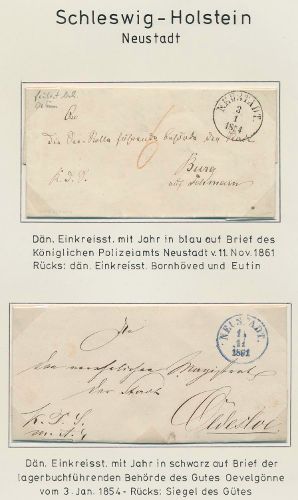 Schleswig-Holstein
Neustadt
NEUSTADT.
3
1
1854
6
Die
führende Behörde
Burg
auf Fehmarn
K. D. S.
Dän. Einkreisst. mit Jahr in blau auf Brief des
Königlichen Polizeiamts Neustadt v. 11. Nov. 1861
Rücks: dän. Einkreisst. Bornhöved und Eutin
NEUSTADT.
11
11
1861
An
den Magistrat
der Stadt
Oldesloe
K. D. S.
Dän. Einkreisst. mit Jahr in schwarz auf Brief der
lagerbuchführenden Behörde des Gutes Oevelgönne
vom 3. Jan. 1854- Rücks: Siegel des Gutes